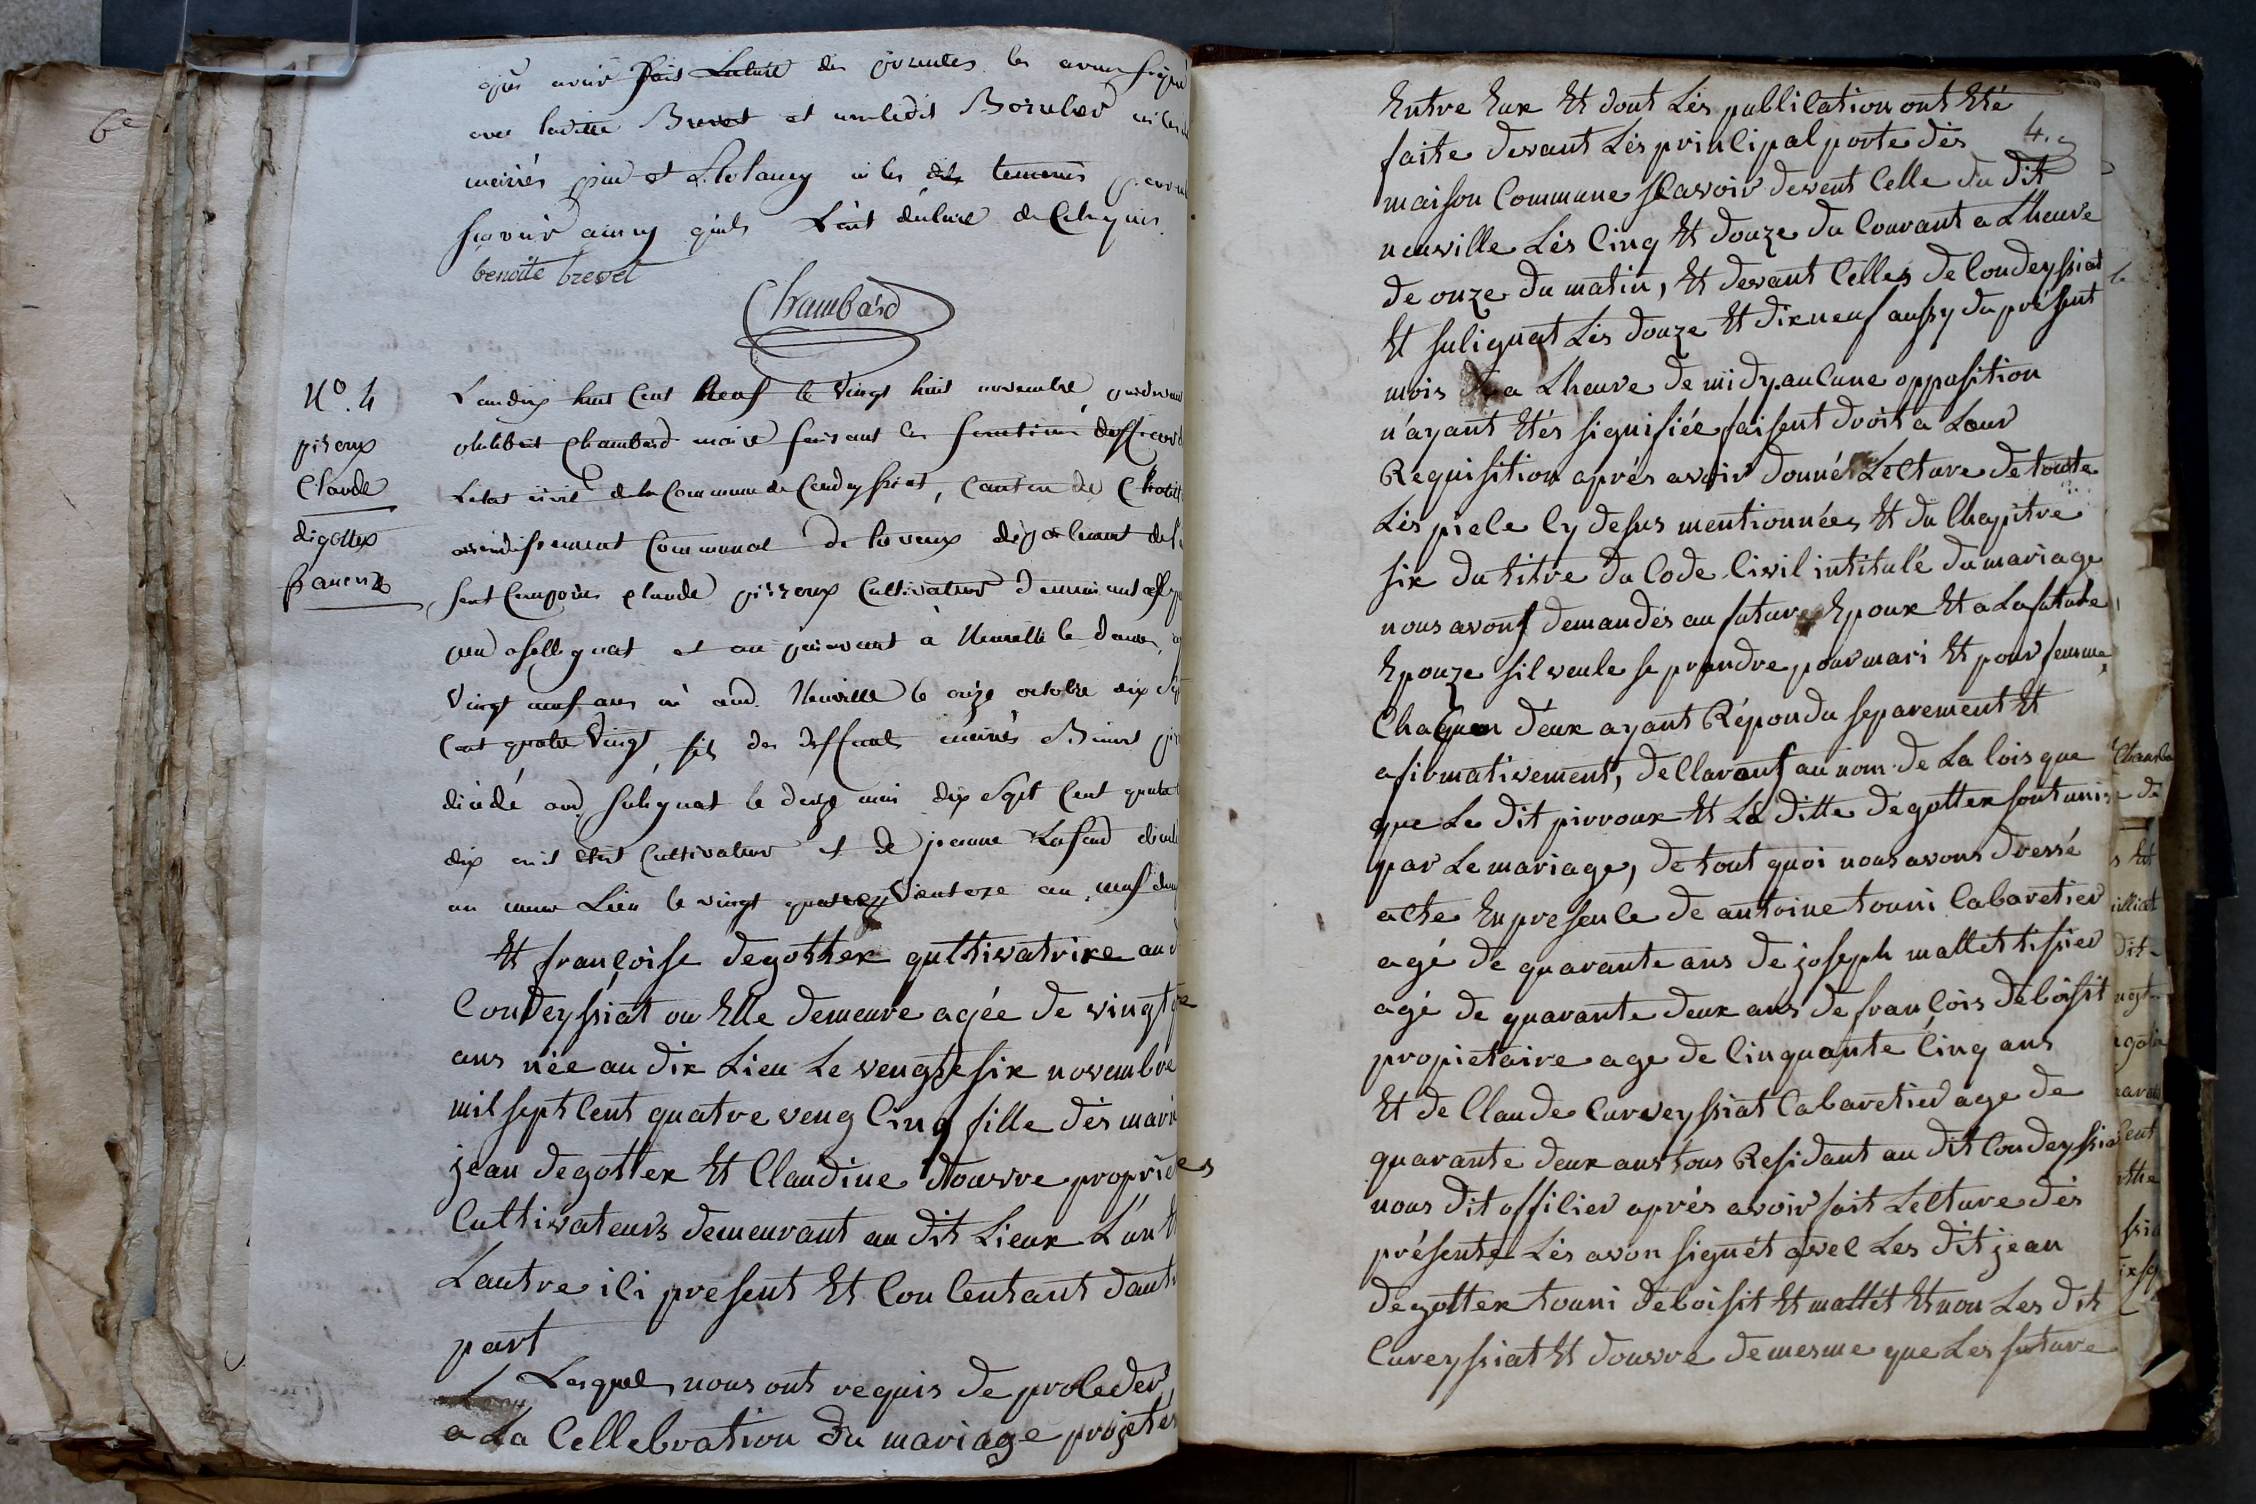 avoir fait Lecture des presentes les avons signé
avec laditte Brevet et ledit
mariés et les dits temoins
scavoir ainsy qu'ils L'ont déclaré de Ce Requis
benoîte brevet
Chambard
N°. 4
piroux
Claude
digottex
francoise
L'an dix huit Cent Neuf le Vingt huit novembre
philibert Chambard maire faisant les fonctions
L'etat civil de la Commune de Condeyssiat, Canton de Chatill
arrondissement Communal de trevoux département de l
sont Comparus Claude pirroux Cultivateur demeurant
Sulignat et au paravant à Neuville
Vingt neuf ans né aud. Neuville le onze octobre dix Sept
Cent quatre Vingt, fils des deffunts mariés
décédé aud. Sulignat le mai dix Sept Cent quatre
dix Cultivateur et de jeanne Lafond
au meme Lieu le vingt quatre Ventoze an neuf
Et françoise degottex qultivatrixe au d
Condeyssiat ou Elle demeure agée de vingt
ans née au dix Lieu Le vengtesix novembre
mil sept Cent quatre veng Cinq fille dés marie
jean degottex Et Claudine douvre propriétes
Cultivateurs demeurant au dit Lieux L'un Et
Lautre ici present Et Concentant dautr
part
Lesquel nous ont requis de proceder
a La Cellebration du mariage projetés
4.
Entre Eux Et dont Lés publication ont Eté
faite devant Lés principal porte dés
maison Commune scavoir devent Celle du dit
neuville Lés Cinq Et douze du Courant a Lheure
de onze du matin, Et devant Celles de Condeyssiat
Et suliguat Lés douze Et dixneuf aussy du présent
mois a Lheure de midy aucune opposition
n'ayant Etés signifiée faisent droit a Leur
Requisition aprés avoir donnés Lecture de toute
Lés piece Cy desus mentionnées Et du Chapitre
six du titre du Code Civil intitulé du mariage
nous avons demandés au future Epoux Et a La future
Epouze sil veule se prandre pour mari Et pour femme
Chaquen d'eux ayant Répondu separement Et
afirmativement, declarons au nom de La lois que
que Le dit pirroux Et La ditte degottex sont unis
par Le mariage, de tout quoi nous avons dressé
acte En presence de antoine tonni Cabaretier
agé de quarante ans de joseph mallet tissier
agé de quarante deux ans de françois déboisit
propietaire age de Cinquante Cinq ans
Et de Claude Curveyssiat Cabaretier age de
quarante deux ans tous Residant au dit Condeyssia
nous dit officier aprés avoir fait Lecture dés
présente Lés avon signét avec Les dit jean
dégottex tonni déboisit Et mallét Et non Les dit
Cureyssiat Et douvre demesme que Les future